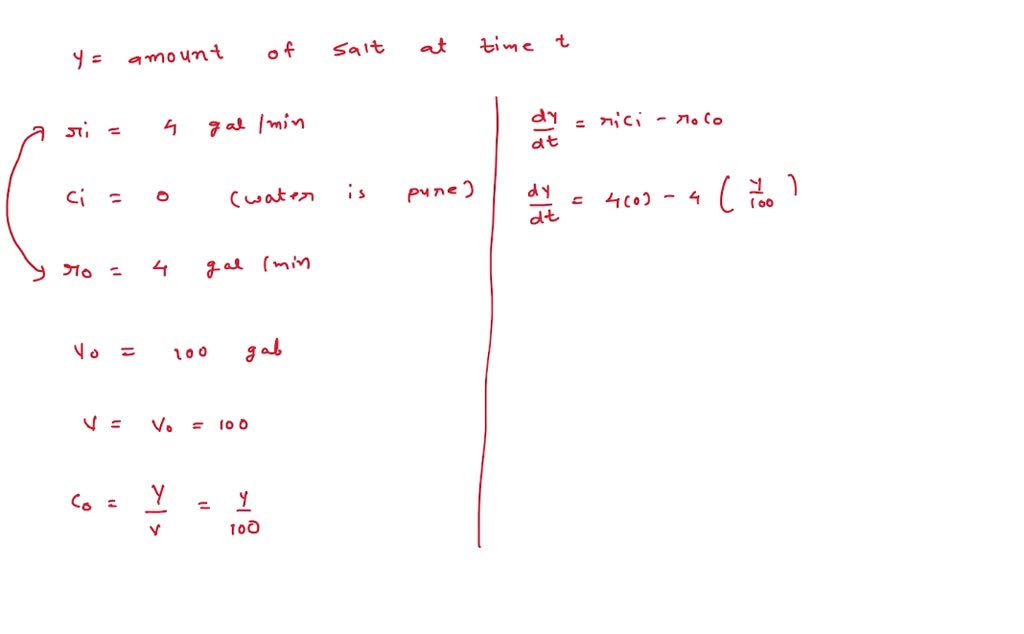 y = amount of salt at time t
ri = 4 gal/min
ci = 0 (water is pure)
ro = 4 gal/min
V0 = 100 gal
V = V0 = 100
C0 = Y/V = Y/100
dy/dt = rici - roco
dy/dt = 4(0) - 4 (y/100)